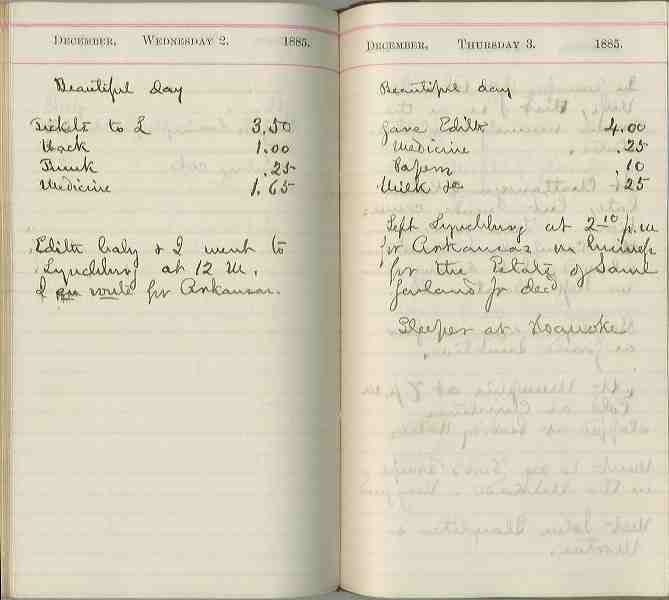 DECEMBER, WEDNESDAY 2. 1885.
Beautiful day
Tickets to L 3.50
Hack 1.00
Trunk .25
Medicine 1.65
Edith baby & I went to
Lynchburg at 12 M.
I en route for Arkansas.
DECEMBER, THURSDAY 3. 1885.
Beautiful day
Gave Edith 4.00
Medicine .25
Papers .10
Milk &c .25
Left Lynchburg at 2 10 p.m
for Arkansas on business
for the Estate of Saml
Garland Jr decd
Sleeper at Roanoke